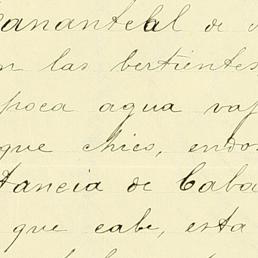 Manantial de
n las bertientes
poca agua
que chico,
tancia de Caba
que cabe, esta